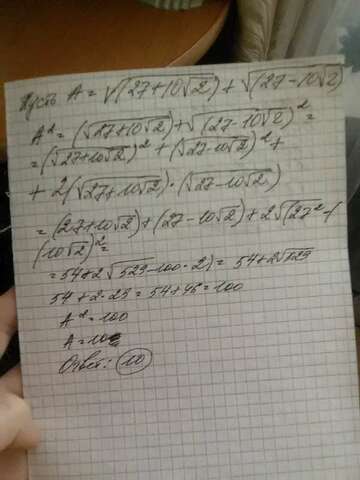 Пусть A = √(27+10√2) + √(27-10√2)
A² = (√27+10√2) + √(27-10√2)² =
= (√27+10√2)² + (√27-10√2)² +
+ 2(√27+10√2)·(√27-10√2)
= (27+10√2) + (27-10√2) + 2√(27²-(
(10√2)² =
= 54+2√529-100·2) = 54+2√529
54 + 2·23 = 54+46 = 100
A² = 100
A = 10
Ответ: 10